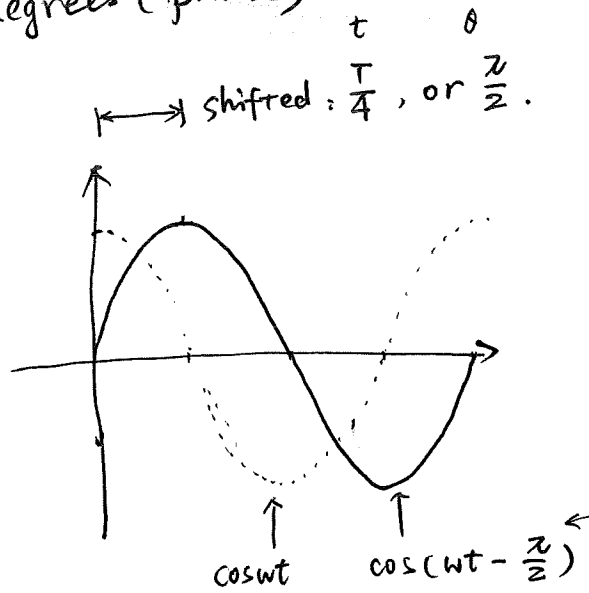 egrees (
t θ
shifted : T/4 , or π/2 .
coswt cos(wt - π/2)